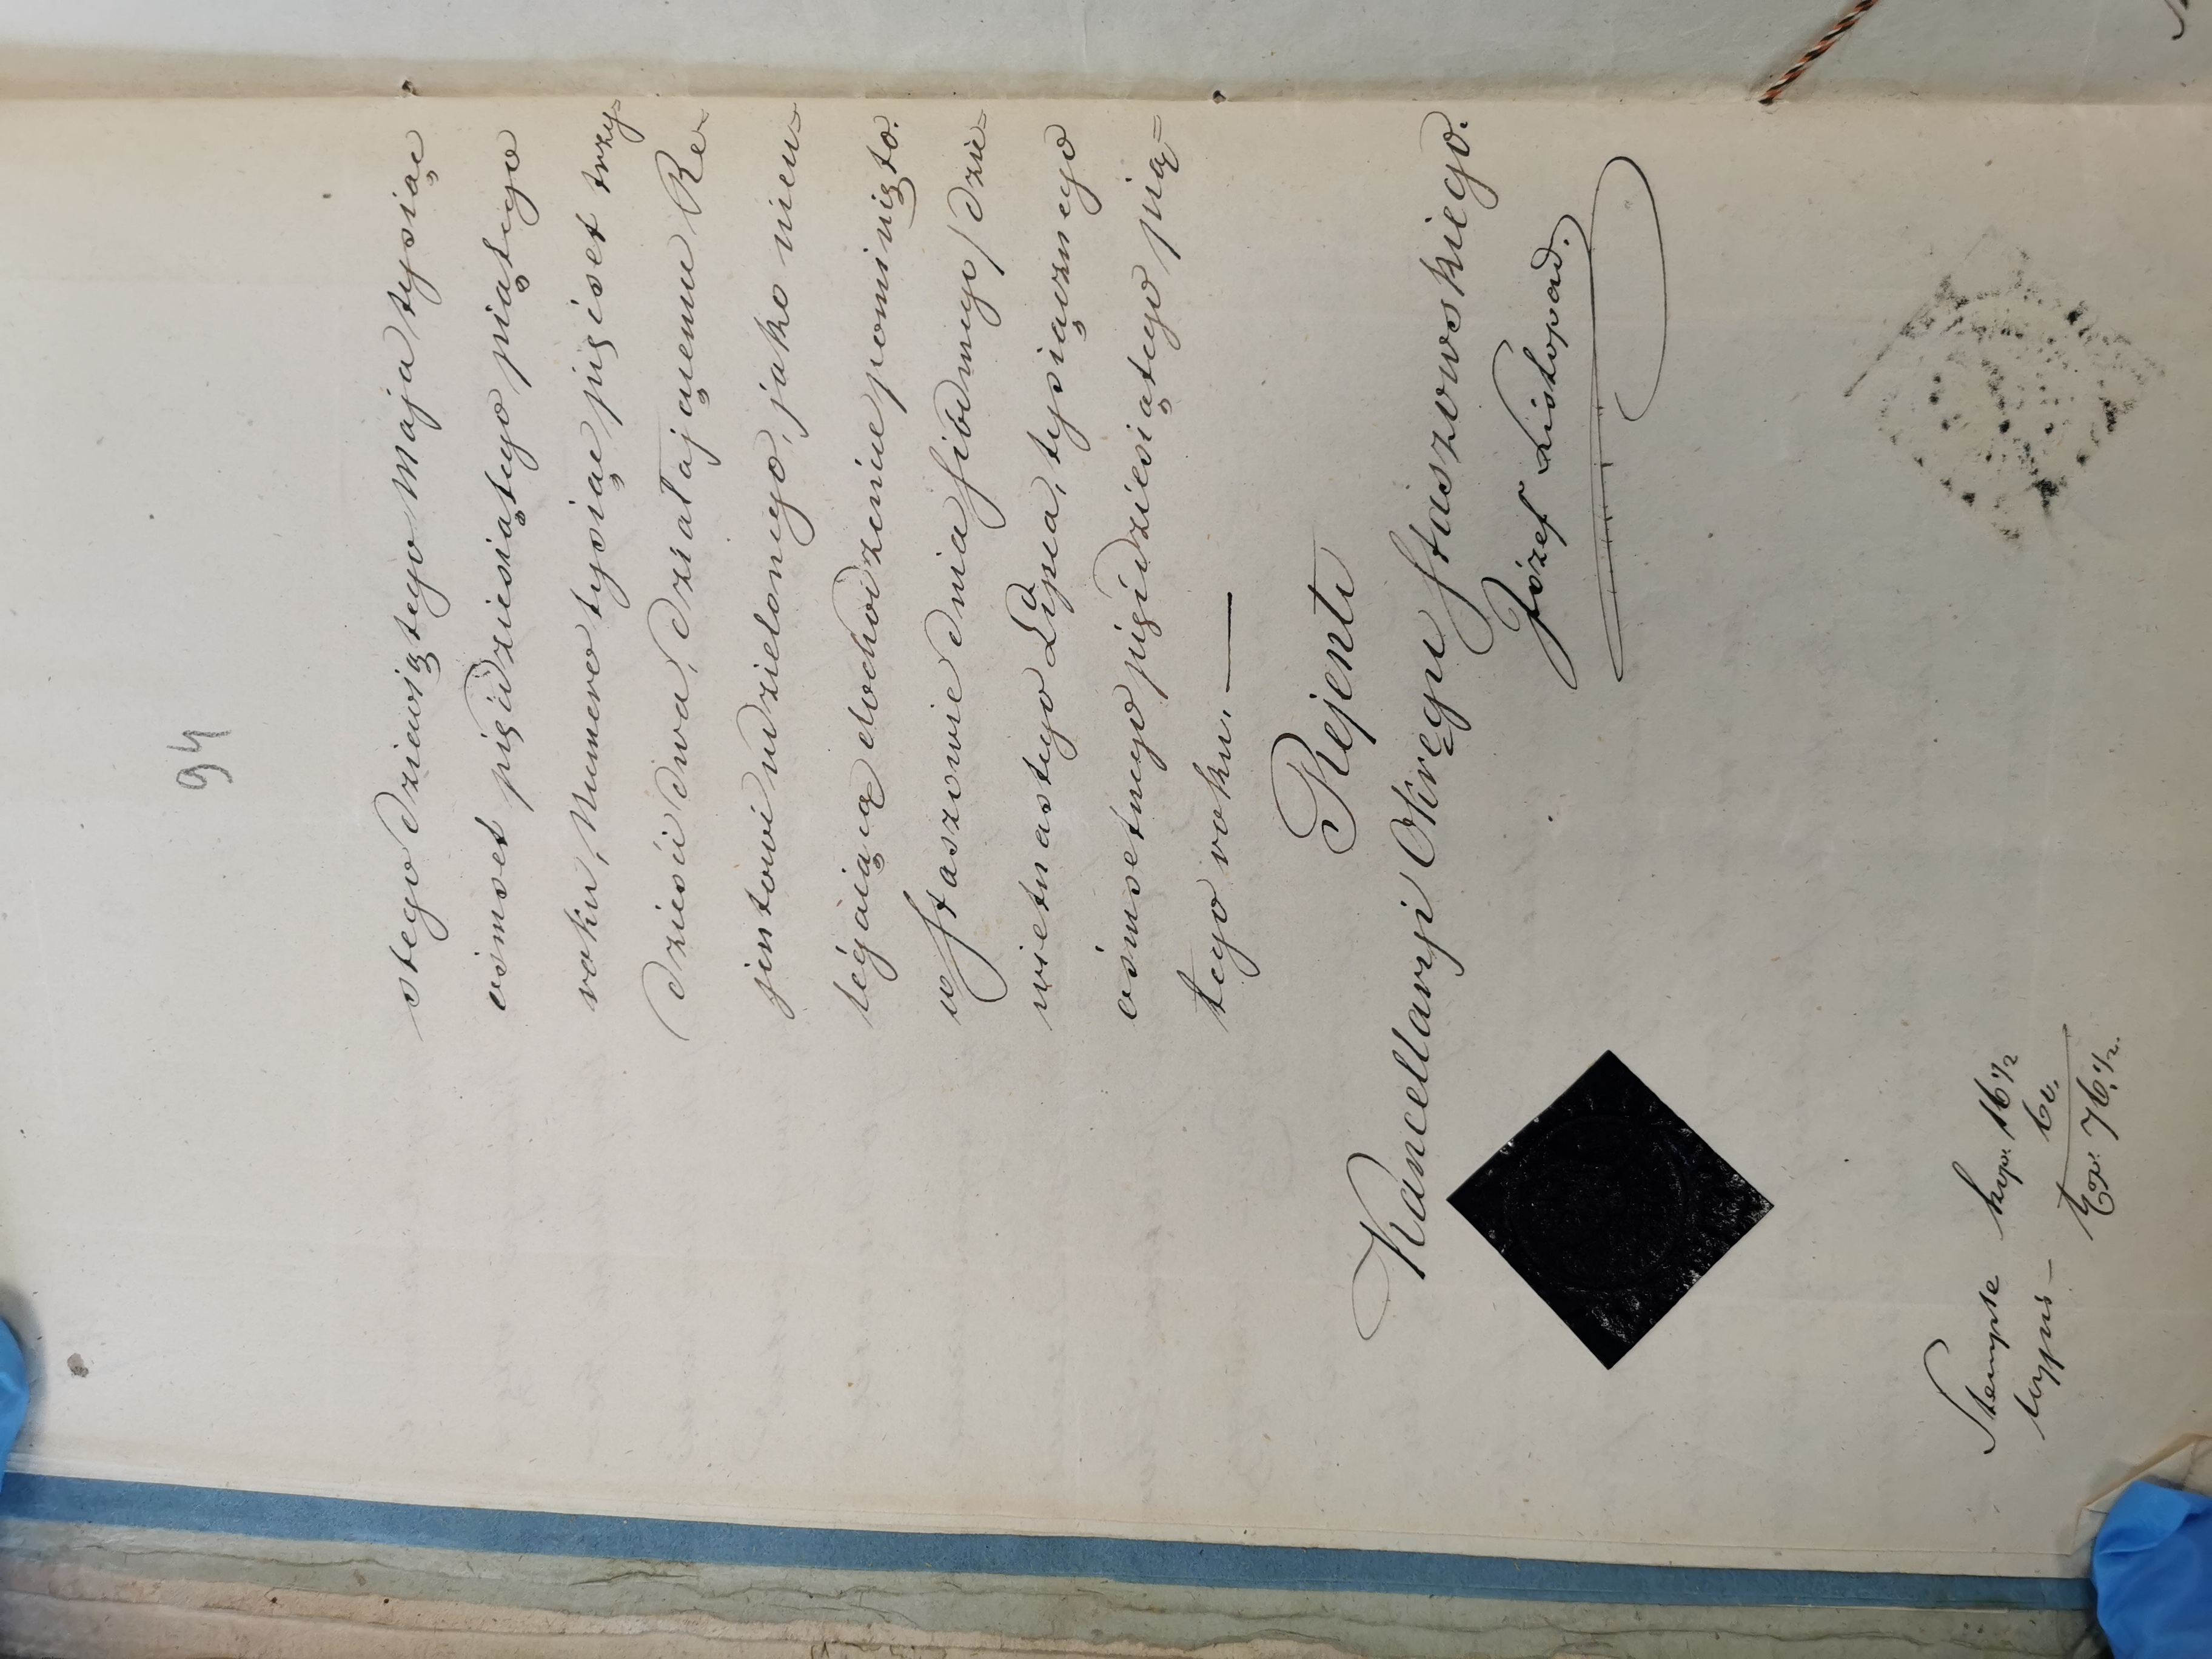 94
stego dziewiętego Maja tysiąc
ośmset pięćdziesiątego piątego
roku, Numero tysiąc pięćset trzy=
dzieści dwa, działającemu Re=
jentowi udzielonego, jako nieu=
legaiąca dochodzenie pominięto.
w Staszowie dnia siódmego / dzie=
więtnastego Lipca, tysiącznego
ośmsetnego pięćdziesiątego pią=
tego roku. —
Rejent
Kancellaryi Okręgu Staszowskiego.
Józef Listopad.
Stemple kop. 16 1/2
wypis — 60.
kop. 76 1/2.